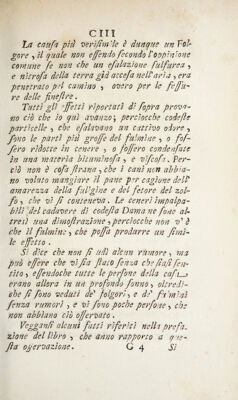 CIII
La causa più verisimile è dunque un Fol-
gore, il quale non essendo secondo l'oppinione
comune se non che un esalazione sulfurea,
e nitrosa della terra già accesa nell'aria, era
penetrato pel camino, overo per le fessu-
re delle finestre.
Tutti gli effetti riportati di sopra prova-
no ciò che io quì avanzo; perciocche codeste
particelle, che esalavano un cattivo odore,
sono le parti più grosse del fulmine, o fos-
sero ridotte in cenere, o fossero condensate
in una materia bituminosa, e viscosa. Per-
ciò non è cosa strana, che i cani non abbia-
no voluto mangiare il pane per cagione dell'
amarezza della fuliggine e del fetore del zol-
fo, che vi si conteneva. Le ceneri impalpa-
bili del cadavere di codesta Dama ne sono al-
tresì una dimostrazione, perciocche non v'è
che il fulmine, che possa produrre un simi-
le effetto.
Si dice che non si udì alcun rumore, ma
può essere che vi sia stato senza che siasi sen-
tito, essendoche tutte le persone della casa
erano allora in un profondo sonno, oltredi-
che si sono veduti de' folgori, e de' fulmini
senza rumori, e vi sono poche persone, che
non abbiano ciò osservato.
Veggansi alcuni fatti riferiti nella prefa-
zione del libro, che anno rapporto a que-
sta osservazione. G 4 Si